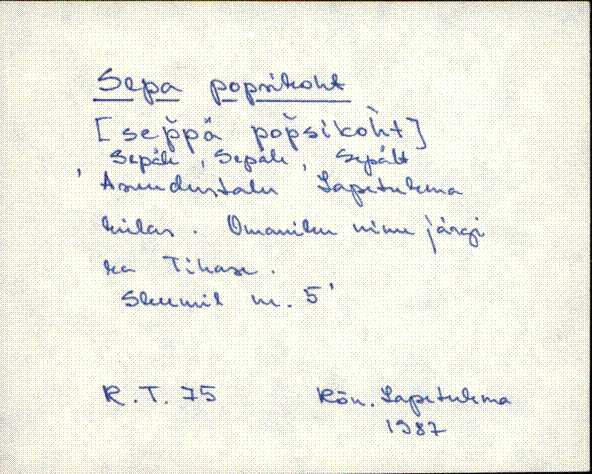 Sepa popsikoht
[sep̌pä pop̌sikoh̀t]
, Sepale, Sepale, Sepält
Asundustalu Lapetukma
külas. Omaniku nime järgi
ka Tihase.
Skeemil nr. 5'
R.T. 75
Rõu. Lapetukma
1987